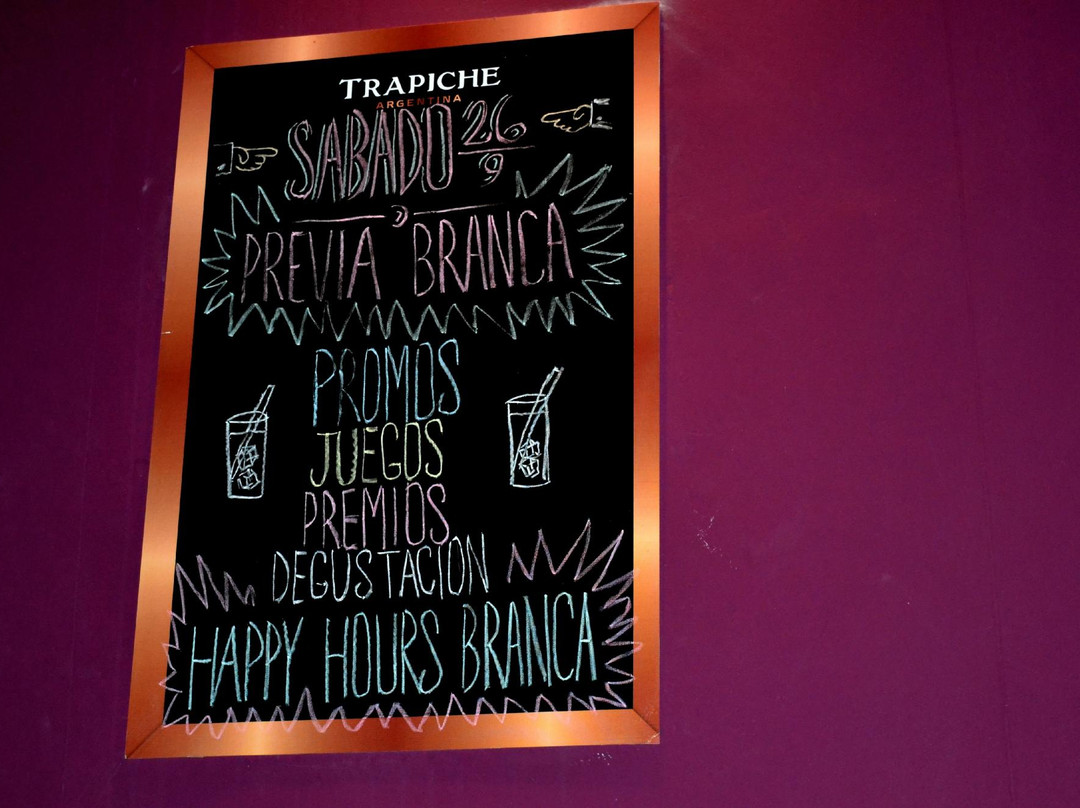 TRAPICHE
ARGENTINA
SABADO 26/9
PREVIA BRANCA
PROMOS
JUEGOS
PREMIOS
DEGUSTACION
HAPPY HOURS BRANCA